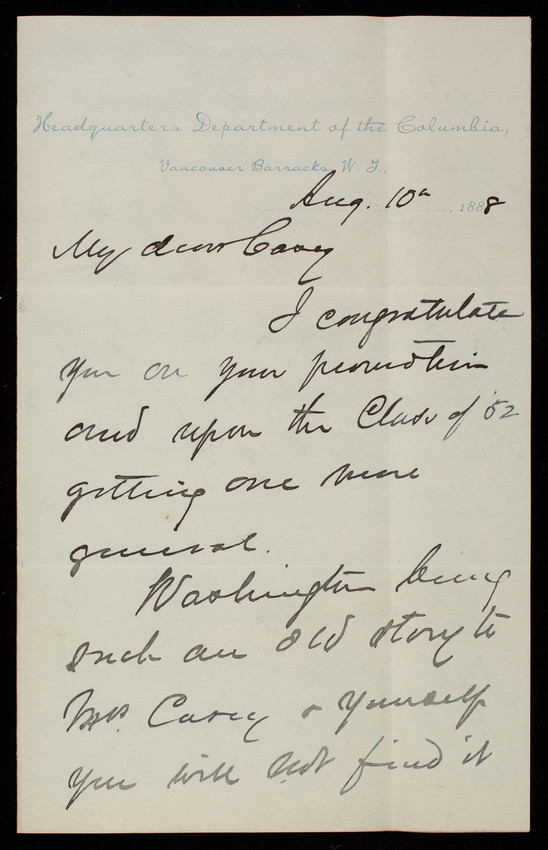 Headquarters Department of the Columbia,
Vancouver Barracks, W. T.,
Aug. 10th, 1888
My dear Casey
I congratulate
you on your promotion
and upon the Class of '52
getting one more
general.
Washington being
such an old story to
Mrs. Casey & yourself
you will not find it